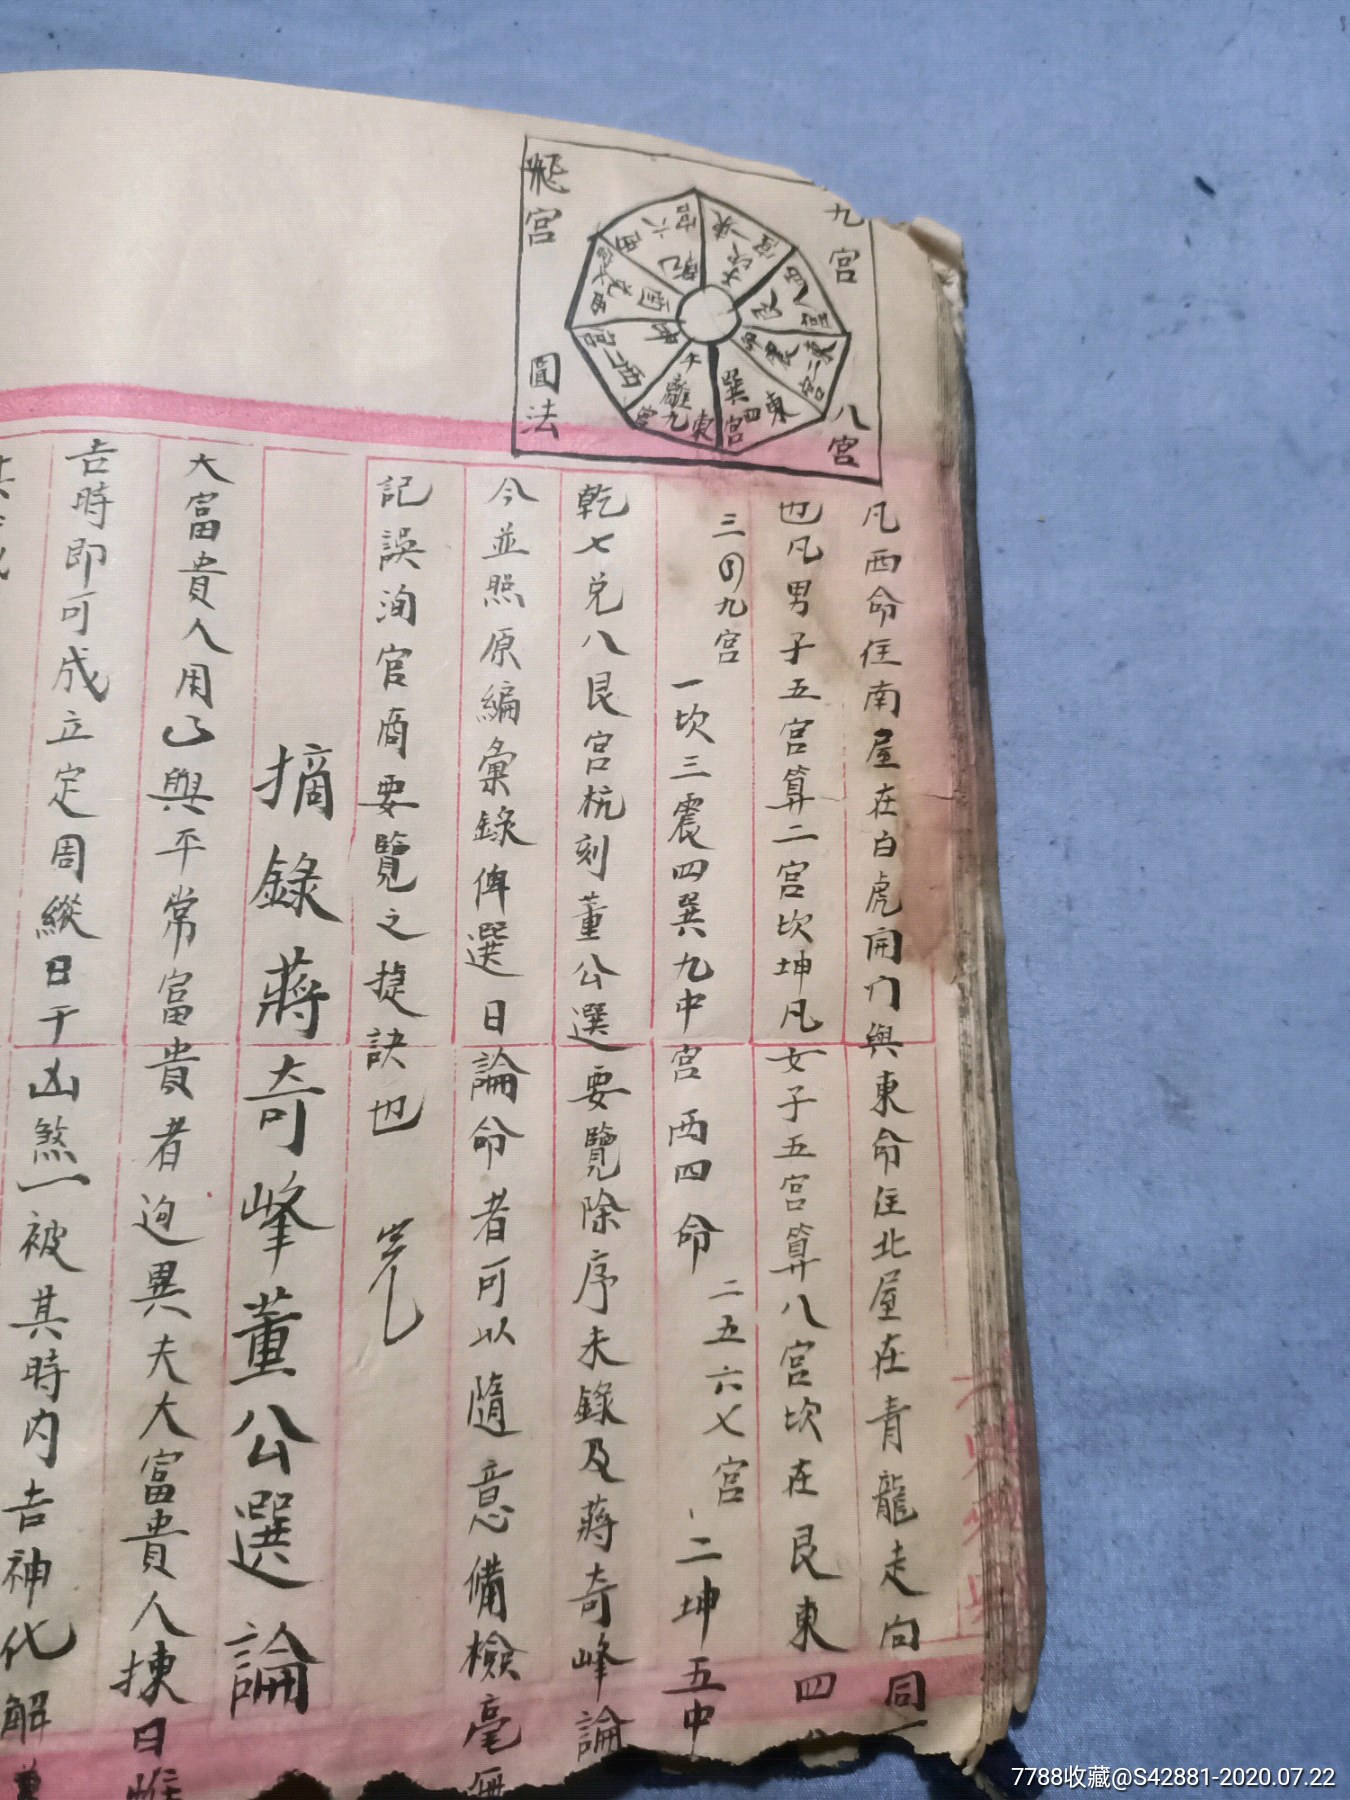 九宮八宮
飛宮圓法
乾六宮西
坎一宮東
艮八宮西
震三宮東
巽四宮東
離九宮東
坤二宮西
兌七宮西
凡西命住南屋在白虎開門與東命住北屋在青龍走向同一
也凡男子五宮算二宮坎坤凡女子五宮算八宮坎在艮東四
三四九宮 一坎三震四巽九中宮 西四命 二五六七宮 二坤五中
乾七兌八艮宮杭刻董公選要覽除序未錄及蔣奇峰論
今並照原編彙錄俾選日論命者可以隨意備檢毫無
記誤洵官商要覽之捷訣也 完
摘錄蔣奇峰董公選論
大富貴人用乙與平常富貴者迥異夫大富貴人揀日惟
吉時即可成立定周縱日干凶煞一被其時內吉神化解
7788收藏@S42881-2020.07.22